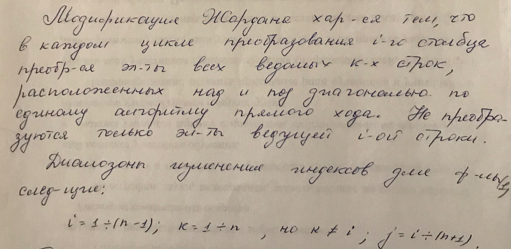 Модификация Жордана хар-ся тем, что
в каждом цикле преобразования i-го столбца
преобр-ся эл-ты всех ведомых к-х строк,
расположенных над и под диагональю по
единому алгоритму прямого хода. Не преобра-
зуются только эл-ты ведущей i-ой строки.
Диапазоны изменения индексов для ф-лы (1)
след-щие:
i = 1 ÷ (n - 1); к = 1 ÷ n , но к ≠ i ; j = i ÷ (n+1).